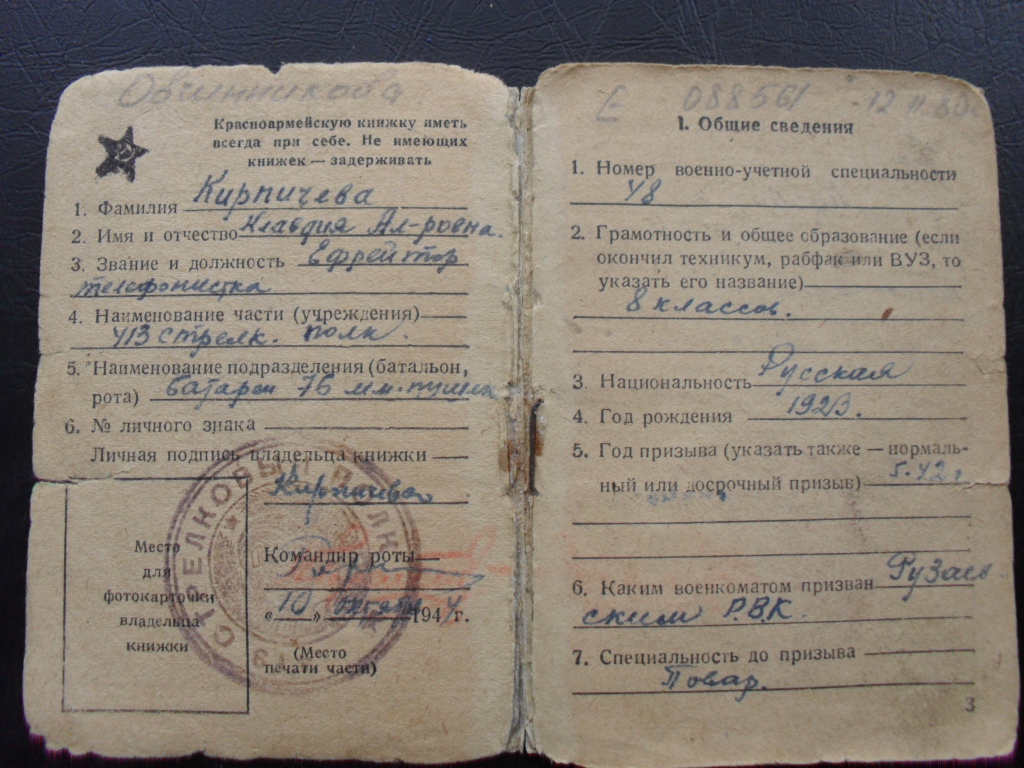 Овчинникова
Красноармейскую книжку иметь
всегда при себе. Не имеющих
книжек — задерживать
1. Фамилия Кирпичева
2. Имя и отчество Клавдия Ал-ровна.
3. Звание и должность Ефрейтор
телефонистка
4. Наименование части (учреждения)
413 стрелк. полк.
5. Наименование подразделения (батальон,
рота) батареи 76 мм. пушек
6. № личного знака
Личная подпись владельца книжки
Кирпичева
Место
для
фотокарточки
владельца
книжки
Командир роты
„10" октября 1944 г.
(Место
печати части)
СТРЕЛКОВЫЙ ПОЛК
Е 088561 12 II 80
1. Общие сведения
1. Номер военно-учетной специальности
48
2. Грамотность и общее образование (если
окончил техникум, рабфак или ВУЗ, то
указать его название)
8 классов.
3. Национальность Русская
4. Год рождения 1923.
5. Год призыва (указать также — нормаль-
ный или досрочный призыв) 5.42 г
6. Каким военкоматом призван Рузаев
ским Р.В.К.
7. Специальность до призыва
Повар.
3